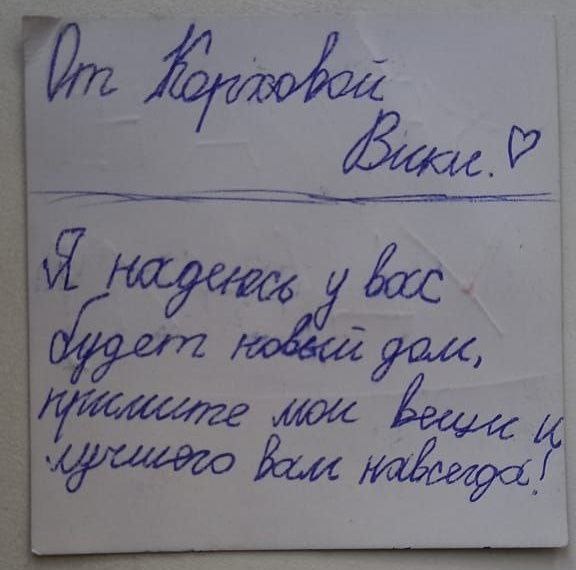 От Корховой
Вики. ♡
Я надеюсь у вас
будет новый дом,
примите мои вещи и
лучшего вам навсегда!